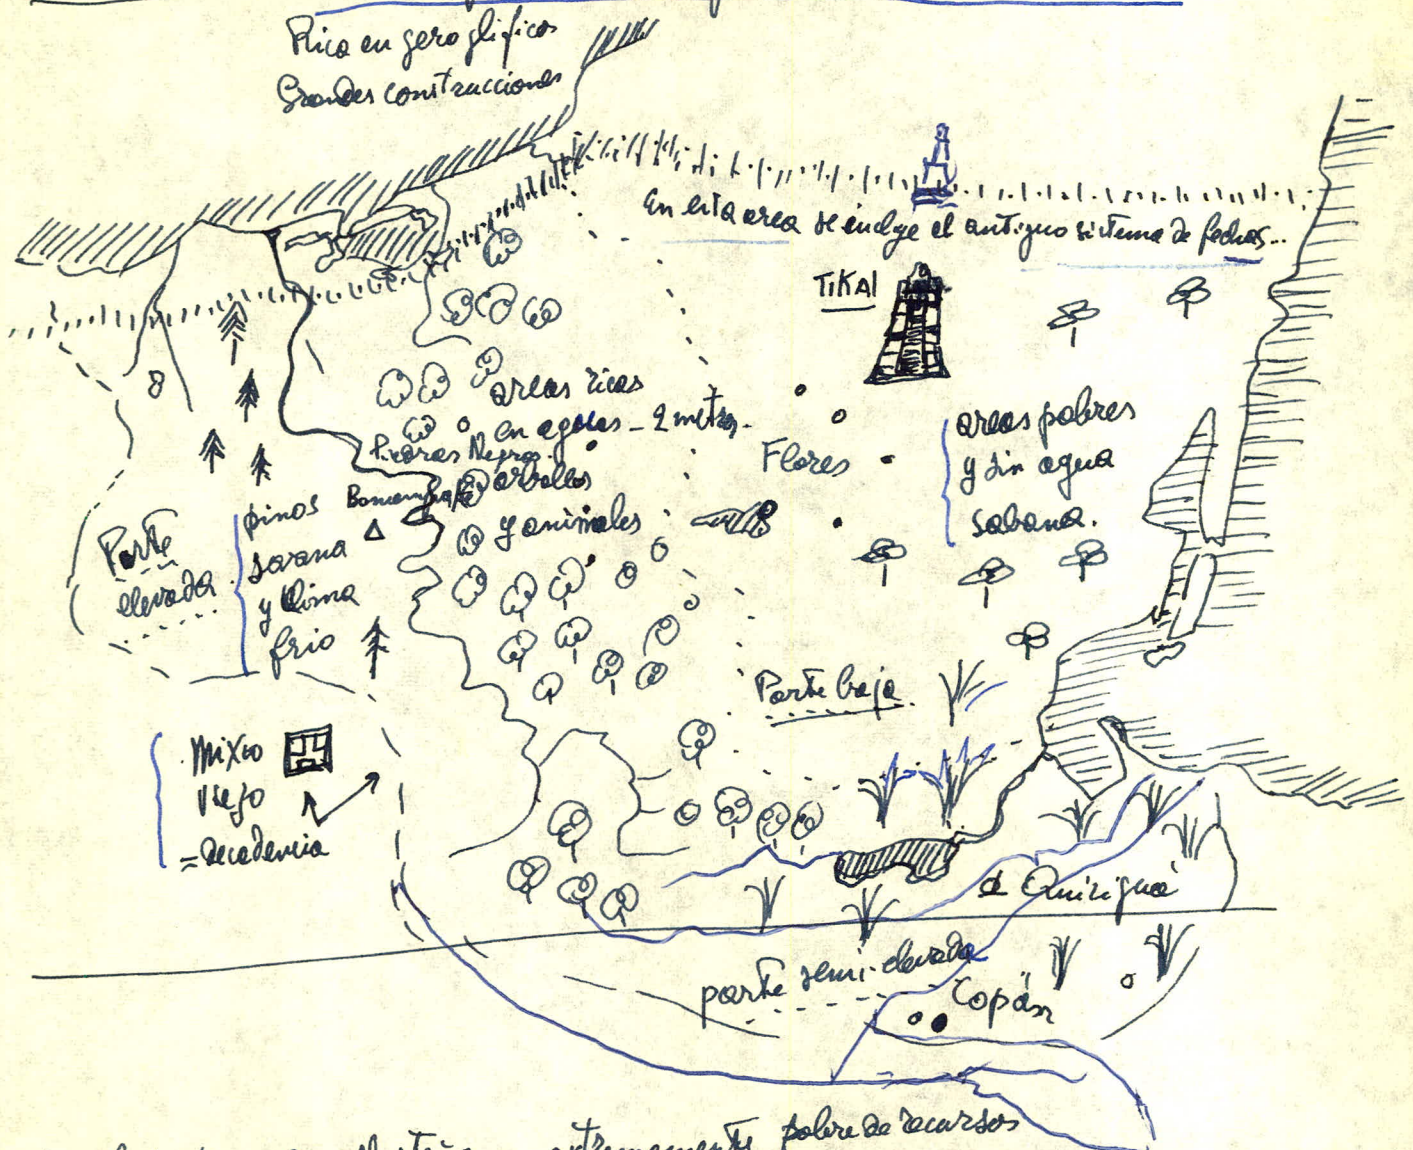 Rica en geroglificos
Grandes construcciones
En esta area se incluye el antiguo sistema de fechas..
TIKAl
areas ricas
en aguas - 2 metros.
Piedras Negras
arbolles
y animales
Flores
areas pobres
y sin agua
sabana.
Parte
elevada
pinos
savana
y clima
frio
Parte baja
Mixco
Viejo
= decadencia
Quiriguá
parte semi-elevada
Copán
extremamente pobre de recursos